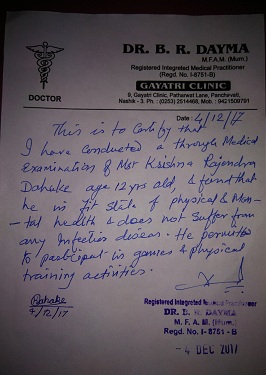 DR. B. R. DAYMA
M.F.A.M. (Mum.)
Registered Integrated Medical Practitioner
(Regd. No. I-8751-B)
GAYATRI CLINIC
DOCTOR
9, Gayatri Clinic, Patharwat Lane, Panchavati,
Nashik - 3. Ph. : (0253) 2514468, Mob : 9421509791
Date : 4/12/17
This is to certify that
I have conducted a through Medical
Examination of Mst Krishna Rajendra
Dahake age 12 yrs old, & find that
he is fit state of physical & Men-
-tal health & does not suffer from
any Infectios diseas. He permitted
to pasticipat in games & physical
training activities.
Dahake
4/12/17
Registered Integrated Medical Practitioner
DR. B. R. DAYMA
M. F. A. M. (Mum.)
Regd. No. I - 8751 - B
- 4 DEC 2017